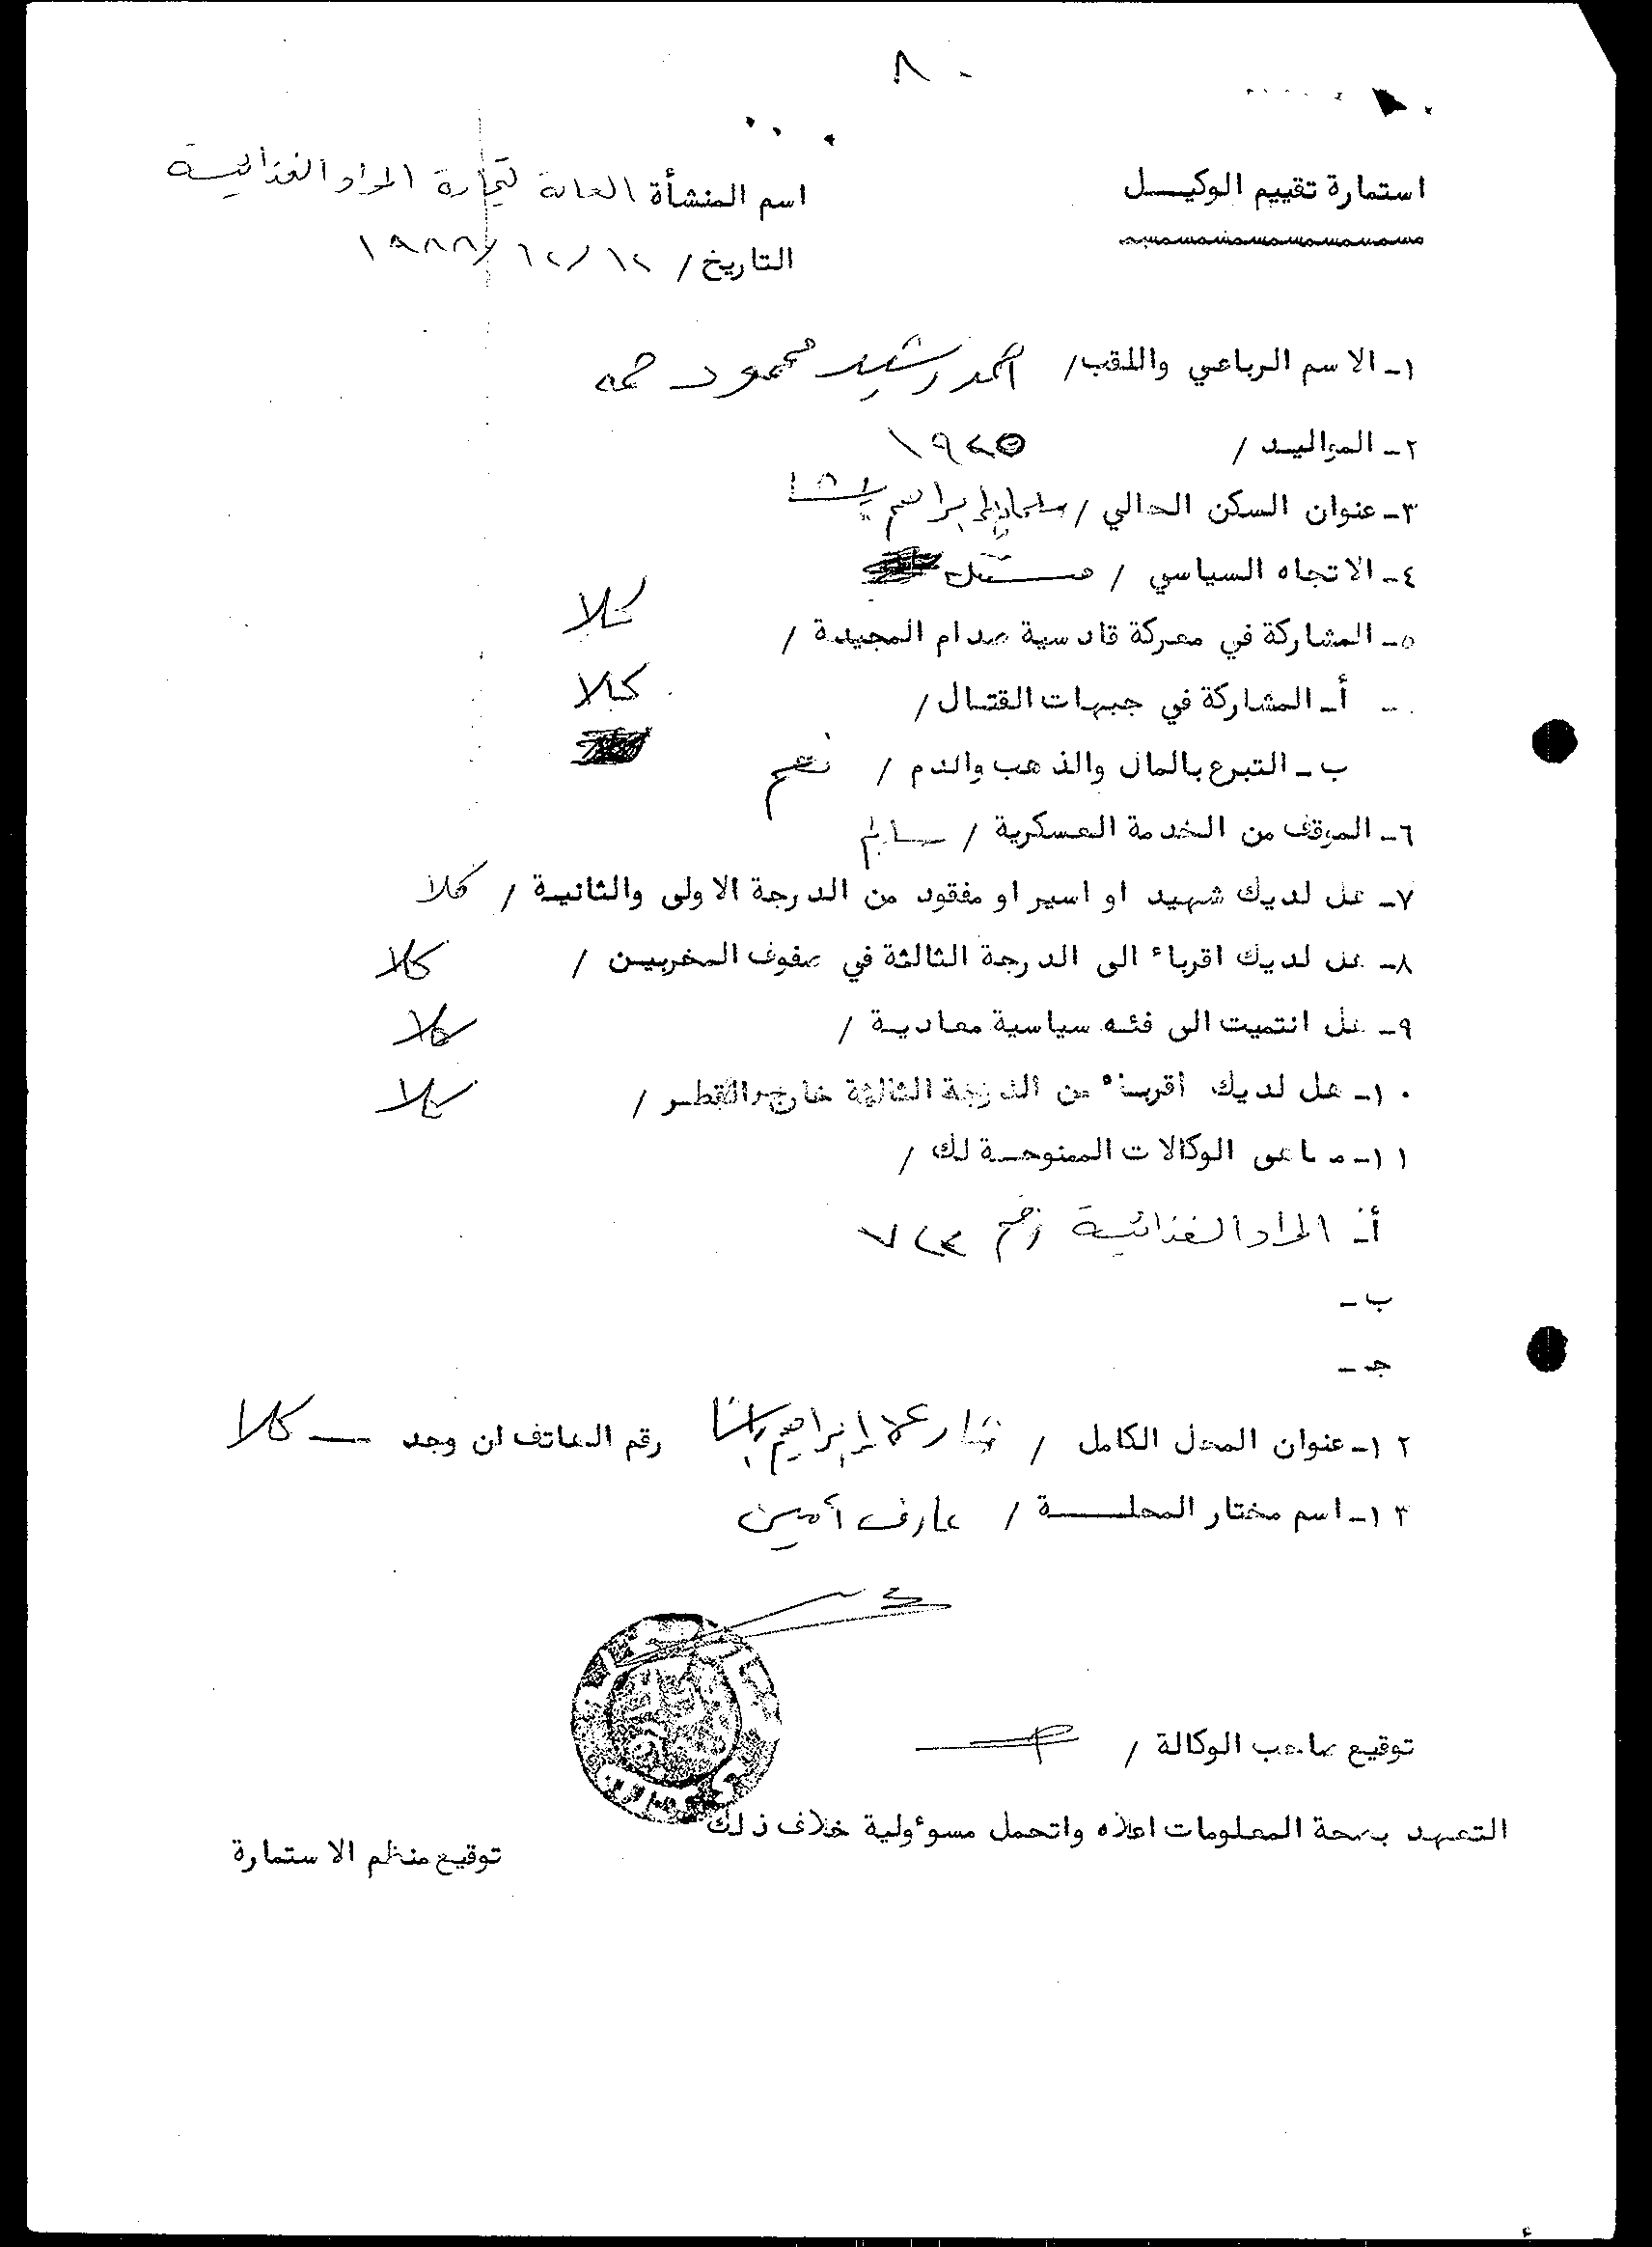 ٨٠
استمارة تقييم الوكيــل
اسم المنشأة العامة لتجارة المواد الغذائية
التاريخ / ١٢/١٢/ ١٩٨٨
١- الاسم الرباعي واللقب/ احمد رشيد محمود حمه
٢- المواليد / ١٩٢٥
٣- عنوان السكن الحالي / ابراهيم پاشا
٤- الاتجاه السياسي / مستقل
٥- المشاركة في معركة قادسية صدام المجيدة / كلا
أ- المشاركة في جبهات القتال / كلا
ب- التبرع بالمال والذهب والدم / نعم
٦- الموقف من الخدمة العسكرية / سالم
٧- هل لديك شهيد او اسير او مفقود من الدرجة الاولى والثانية / كلا
٨- هل لديك اقرباء الى الدرجة الثالثة في صفوف المخربين / كلا
٩- هل انتميت الى فئه سياسية معادية / كلا
١٠- هل لديك اقرباء من الدرجة الثالثة خارج القطر / كلا
١١- ماهي الوكالات الممنوحة لك /
أ- المواد الغذائية رقم ٧٢٣
ب-
جـ-
١٢- عنوان المحل الكامل / شارع ابراهيم پاشا رقم الهاتف ان وجد — كلا
١٣- اسم مختار المحلــة / عارف أمين
توقيع صاحب الوكالة /
التعهد بصحة المعلومات اعلاه واتحمل مسوءولية خلاف ذلك
توقيع منظم الاستمارة